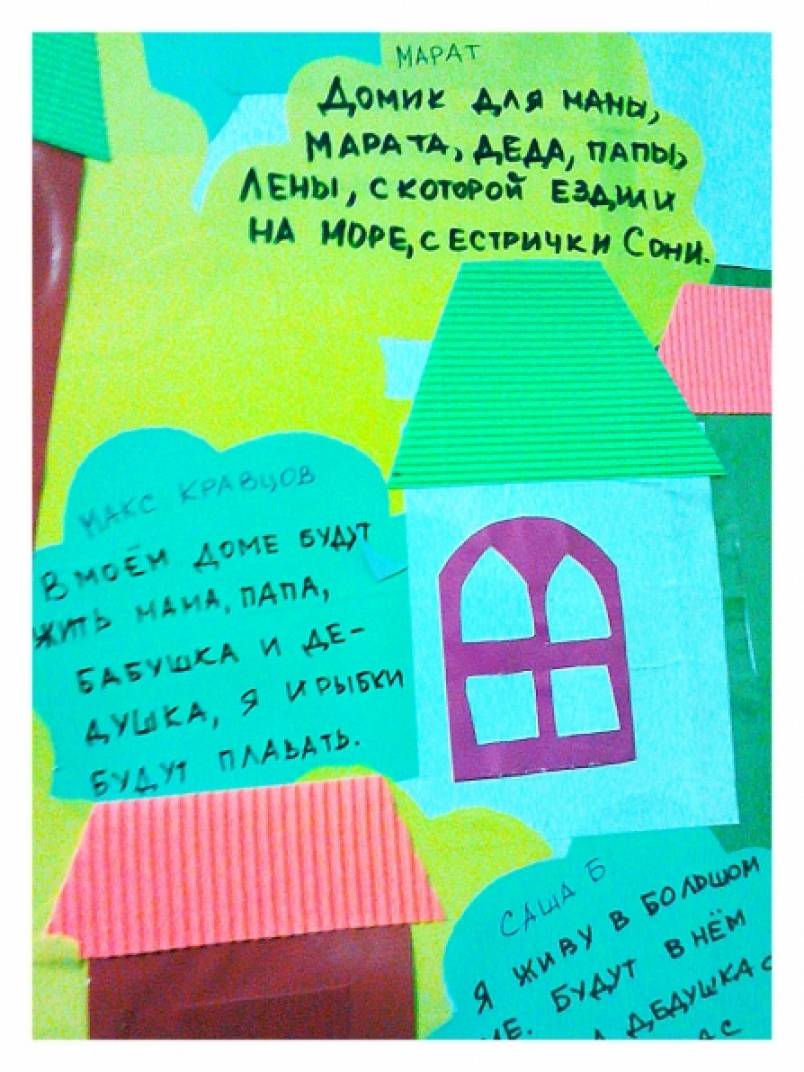 МАРАТ
ДОМИК ДЛЯ МАМЫ,
МАРАТА, ДЕДА, ПАПЫ,
ЛЕНЫ, С КОТОРОЙ ЕЗДИЛИ
НА МОРЕ, СЕСТРИЧКИ СОНИ.
МАКС КРАВЦОВ
В МОЁМ ДОМЕ БУДУТ
ЖИТЬ МАМА, ПАПА,
БАБУШКА И ДЕ-
ДУШКА, Я И РЫБКИ
БУДУТ ПЛАВАТЬ.
САША Б.
Я ЖИВУ В БОЛЬШОМ
МЕ. БУДУТ В НЁМ
ДЕДУШКА С